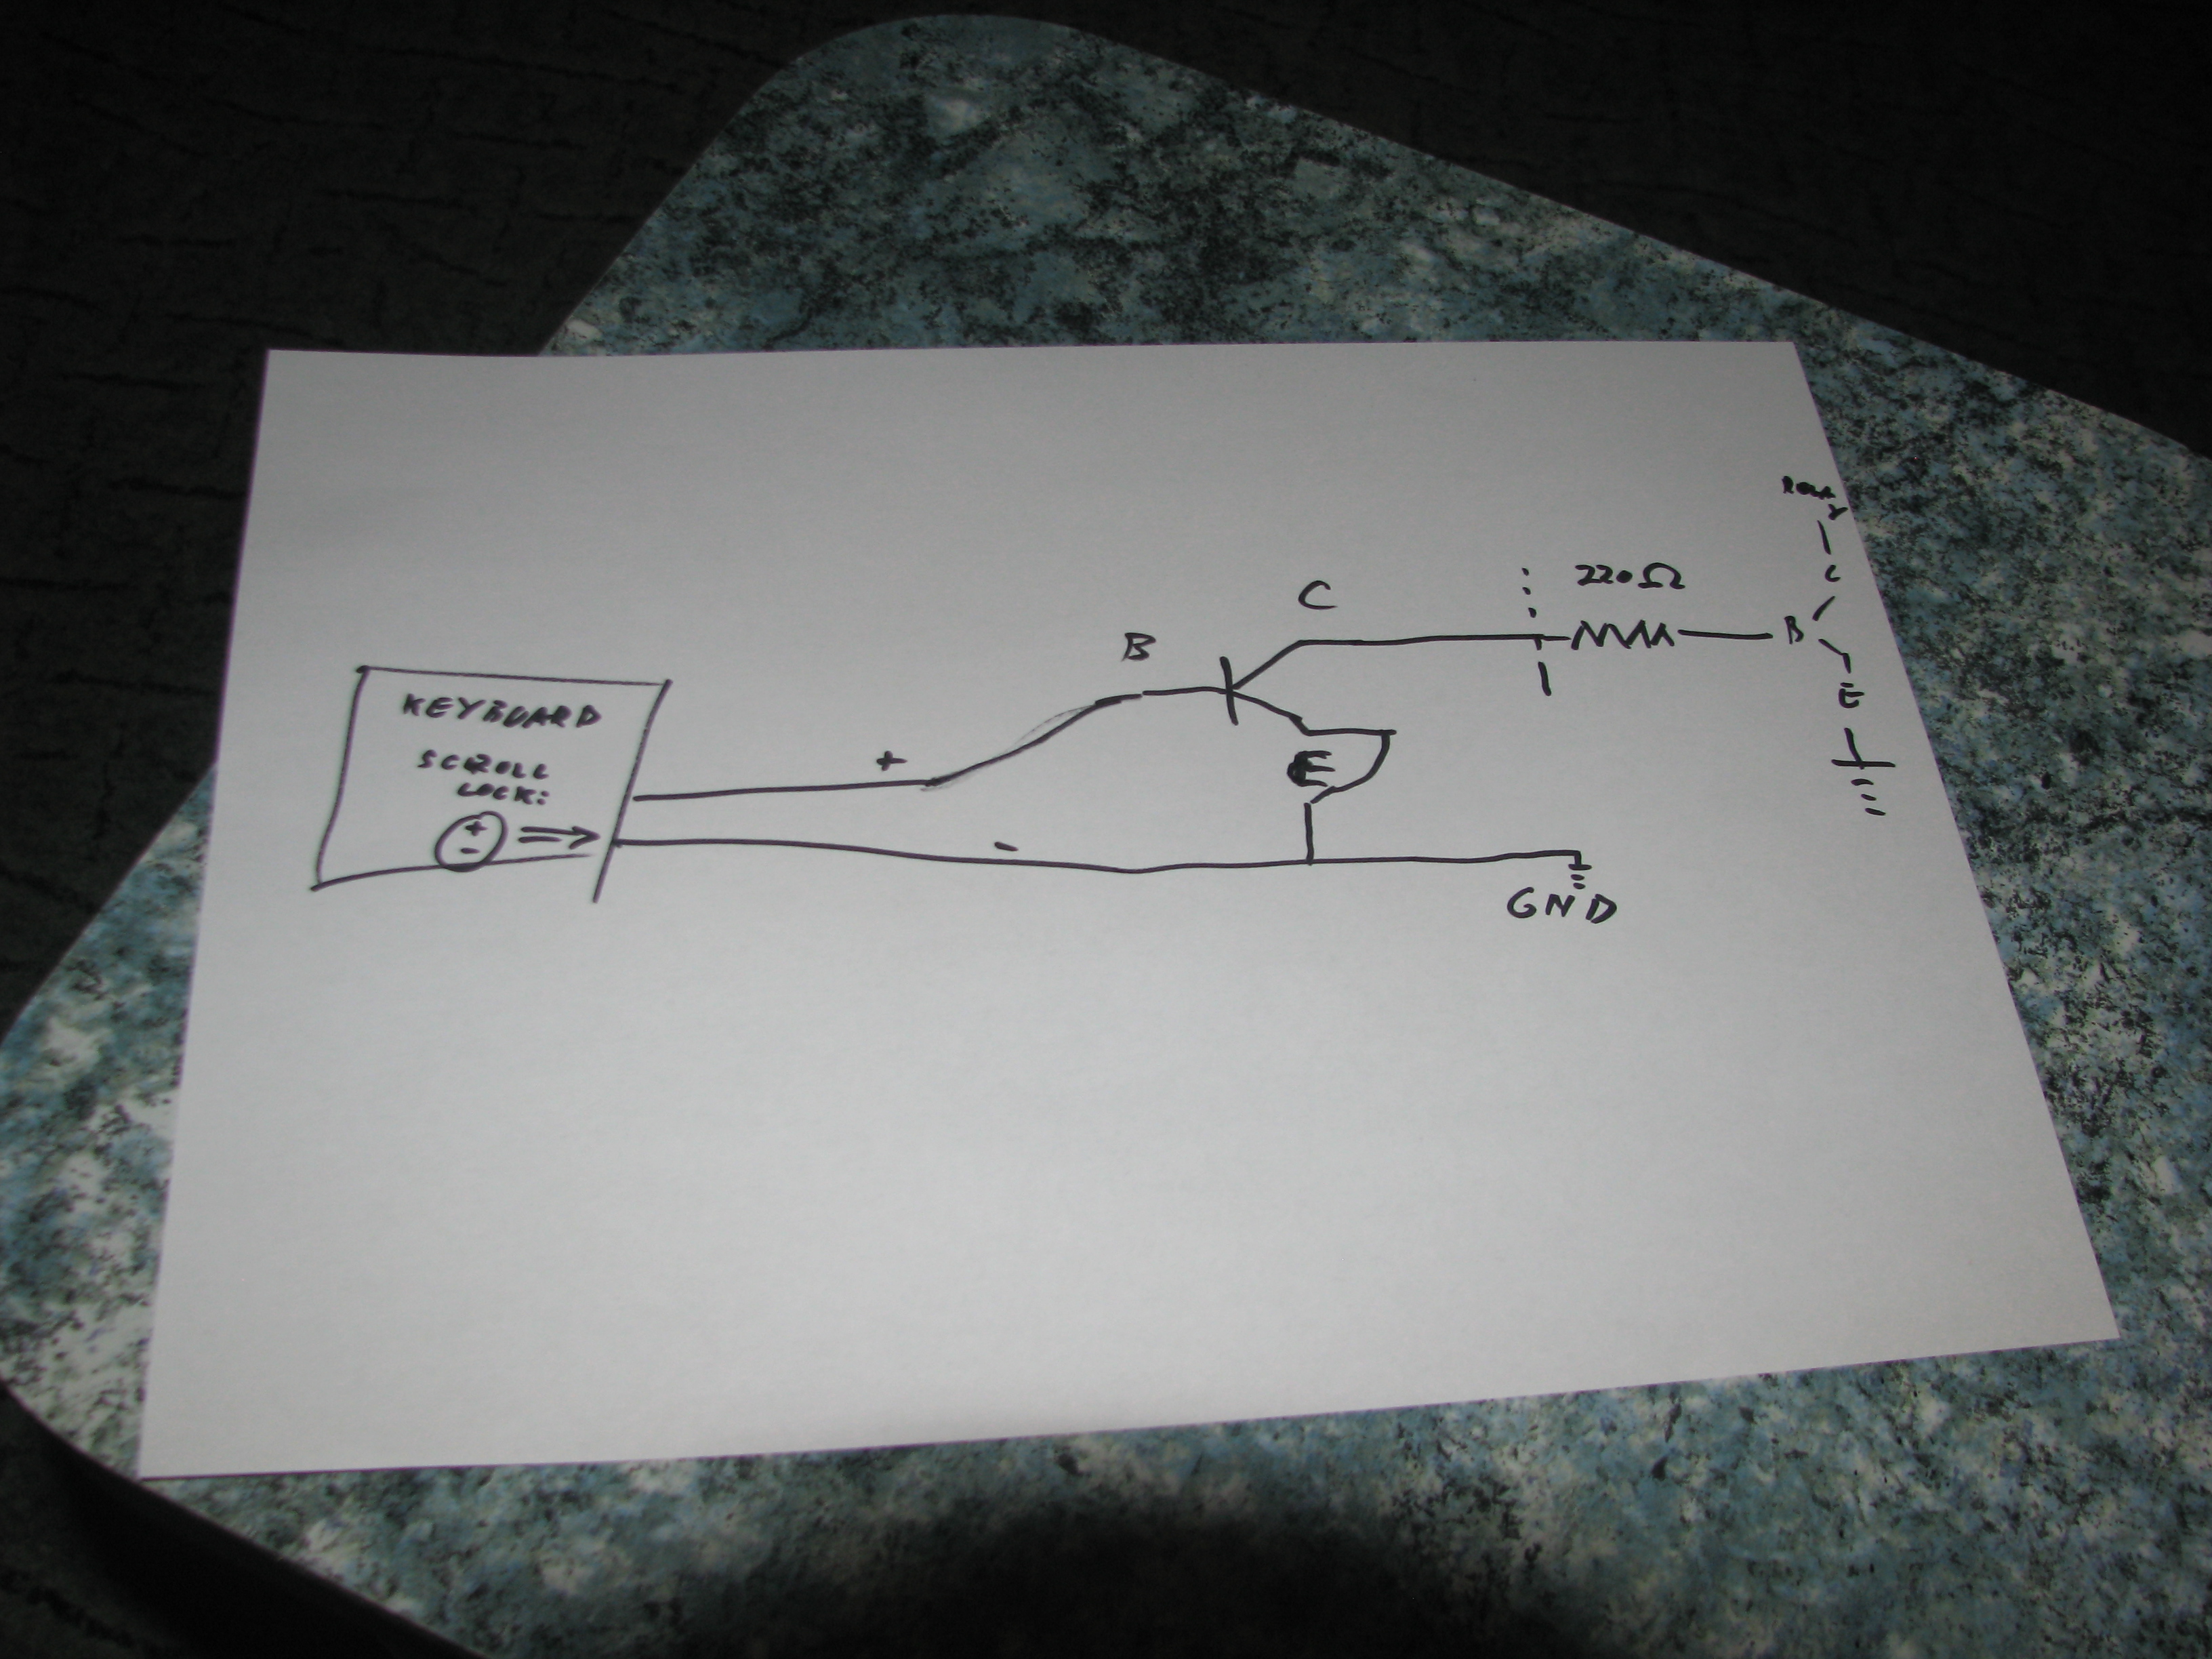 KEYBOARD
SCROLL
LOCK:
+
-
+
-
B
C
E
GND
220Ω
Relay
C
B
E